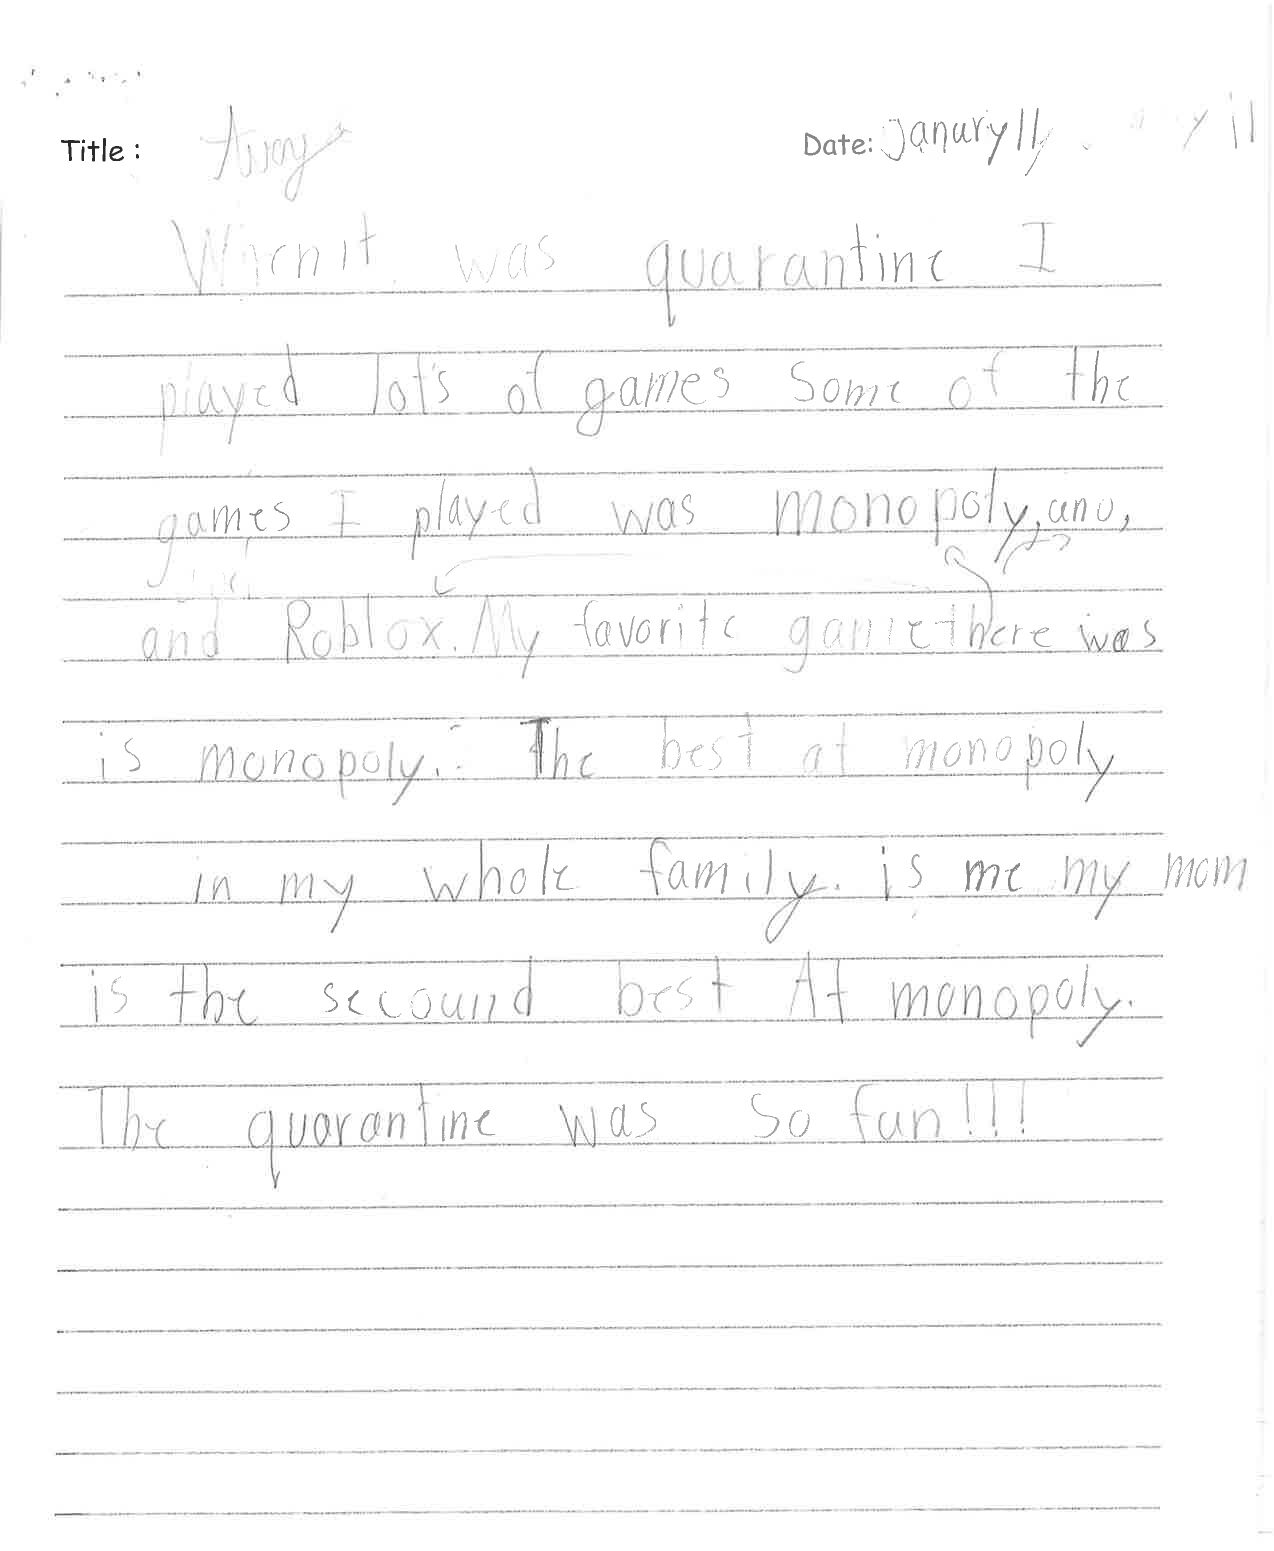 Title :
Date: Janury 11
When it was quarantine I
played lots of games Some of the
games I played was monopoly, uno,
and Roblox. My favorite game there was
is monopoly. The best at monopoly
in my whole family. is me my mom
is the secound best At monopoly.
The quarantine was So fun!!!